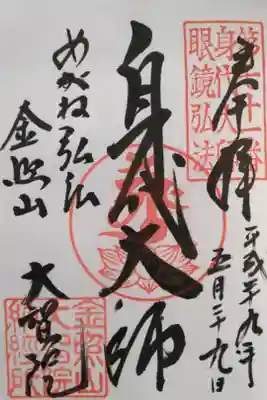 奉拝
平成廿九年
五月廿九日
第七十一番
身代大師
眼鏡弘法
身代大師
めがね弘法
金照山
大智院
金照山
大智院